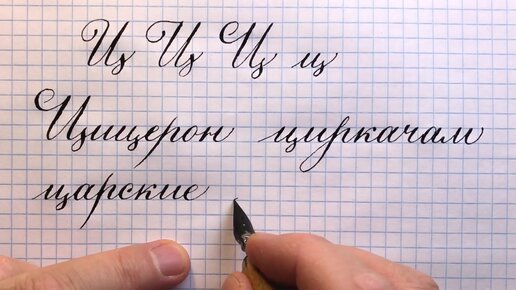 Ц Ц Ц ц
Цицерон циркачам
царские